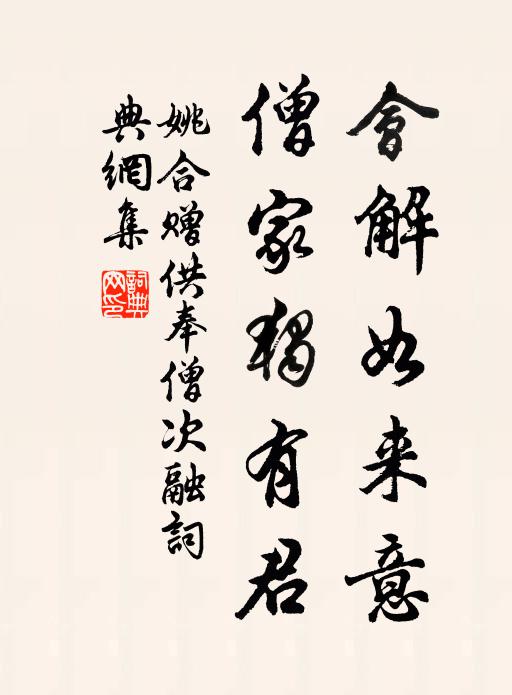 會解如来意
僧家獨有君
姚合赠供奉僧次融詞
典網集
詞典
网印